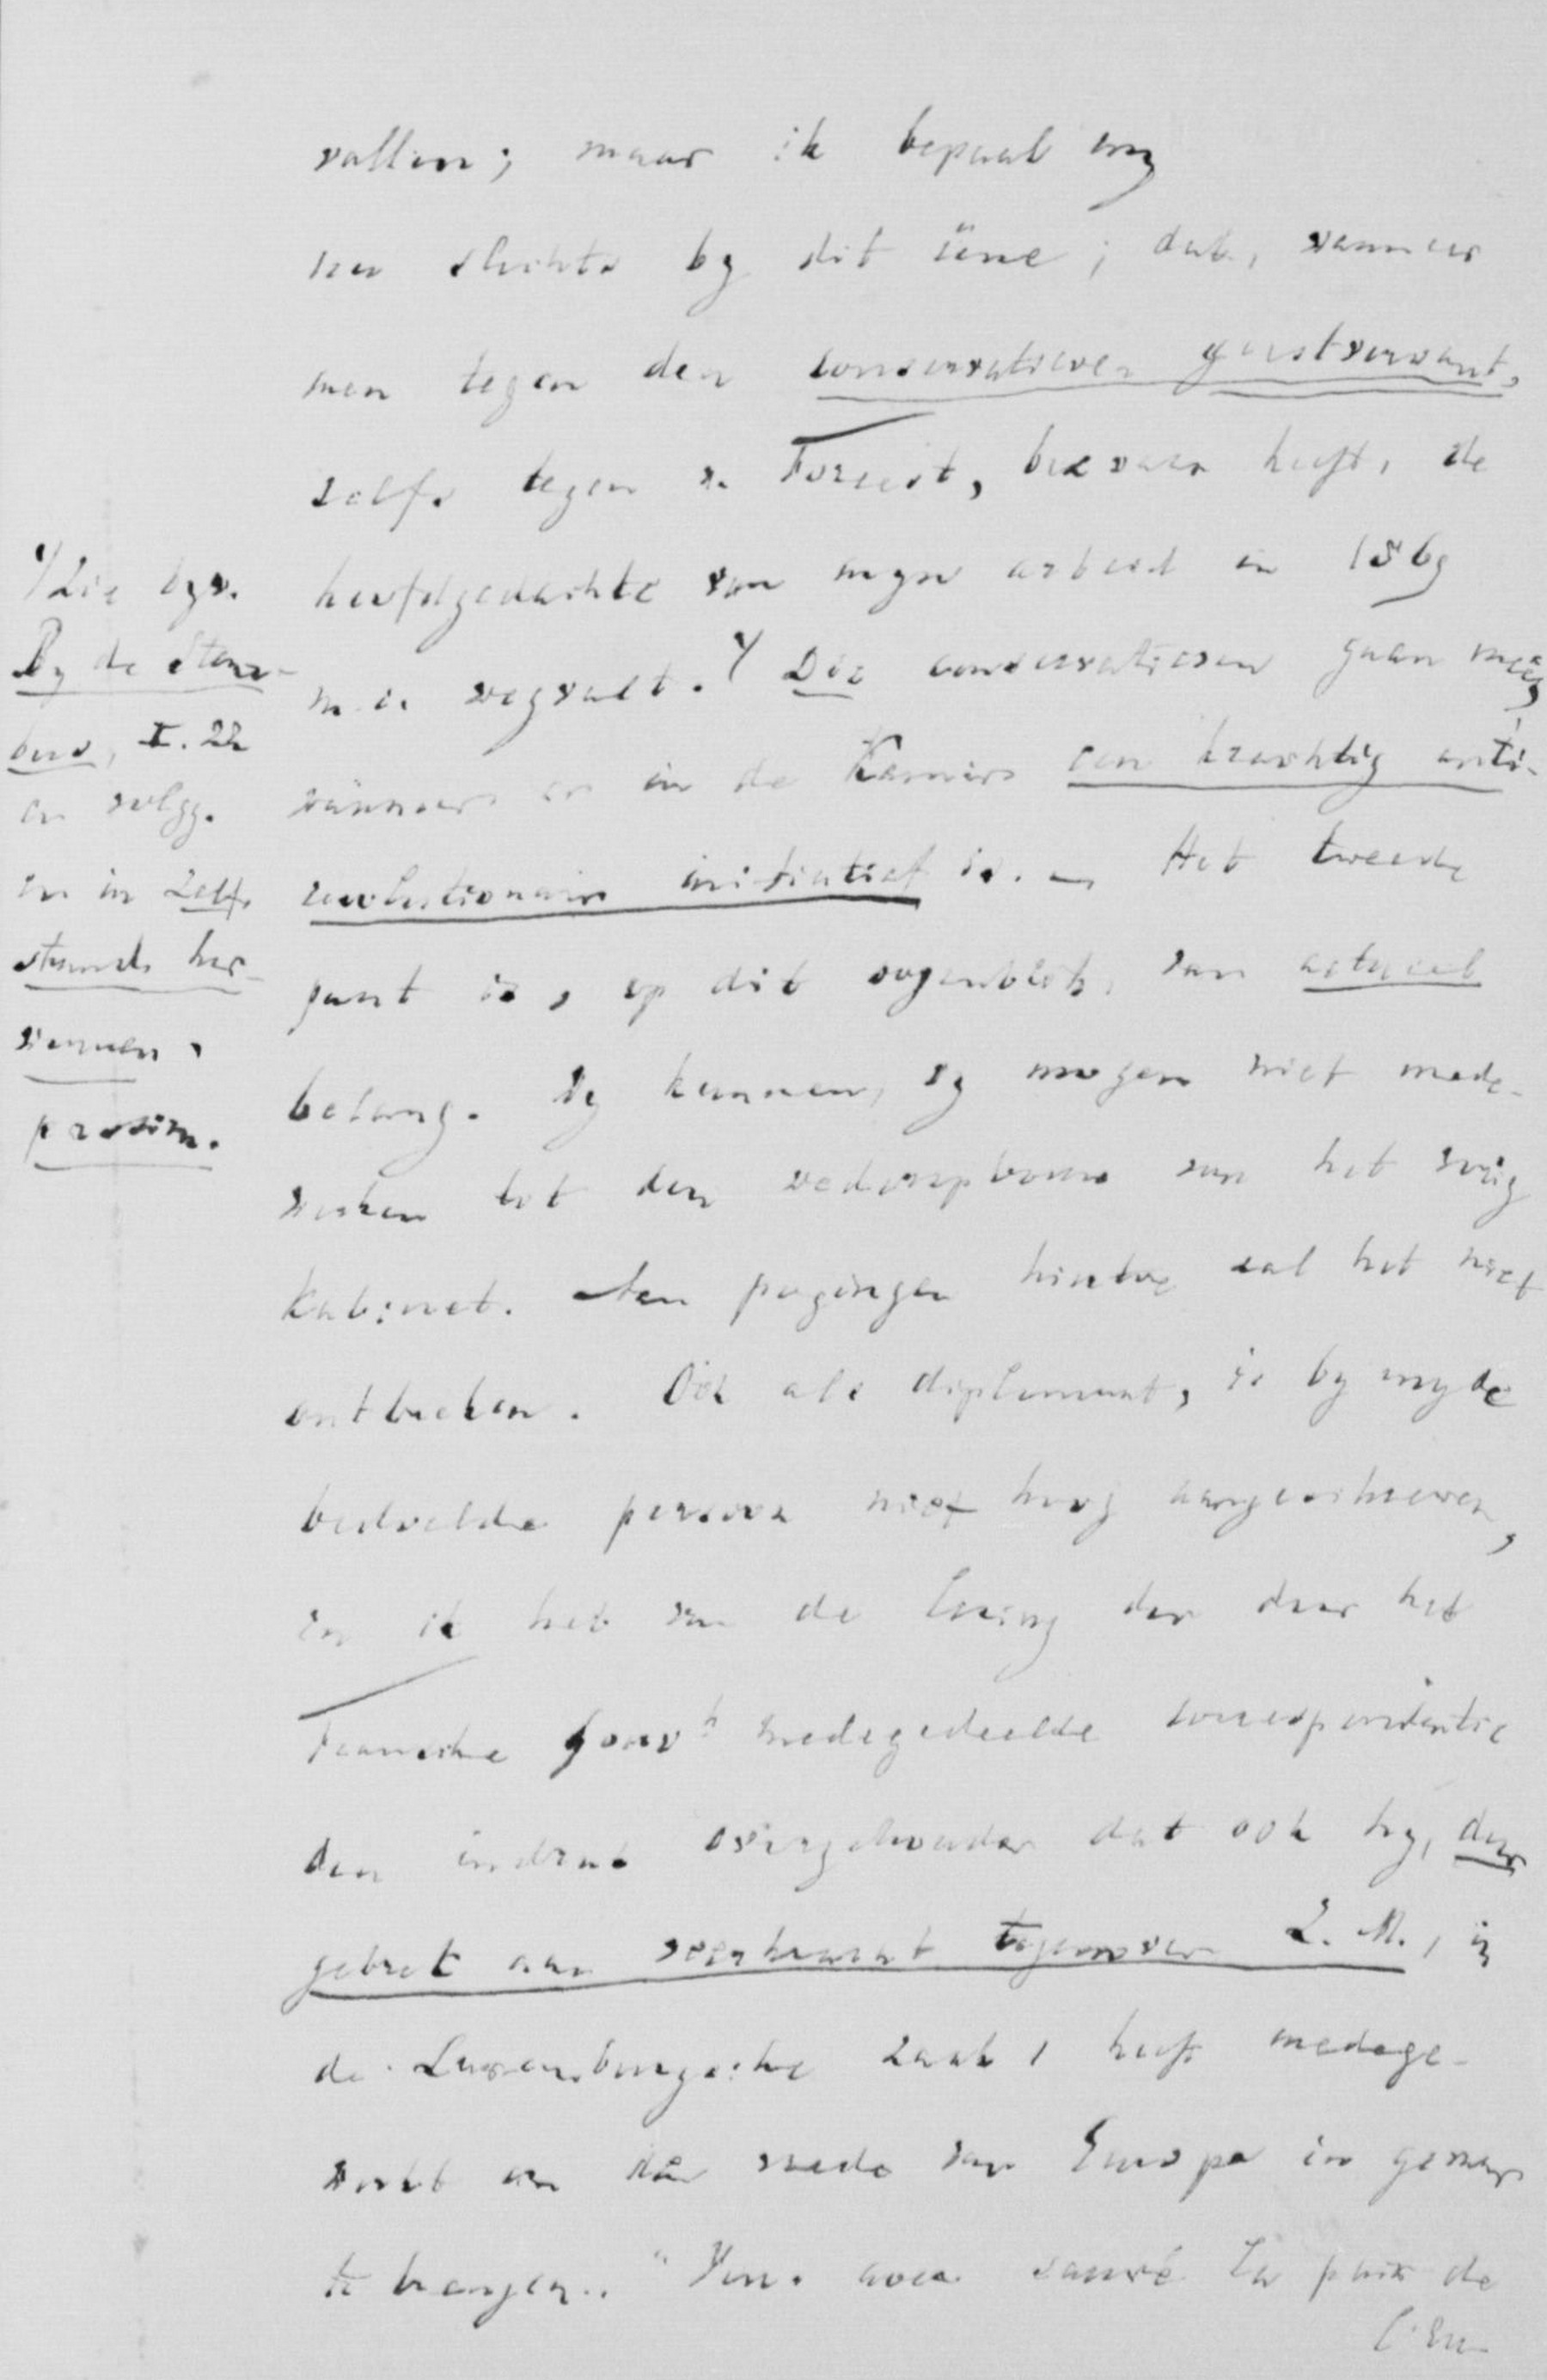 vallen; maar ik bepaal my
nu slechts by dit ééne; dat, wanneer
men tegen den conservatieven geestverwant,
zelfs tegen v. Foreest, bezwaar heeft, de
hoofdgedachte van myn arbeid in 1869
m. i. wegvalt. 1) Die conservatieven gaan meê,
wanneer er in de Kamer een krachtig anti-
revolutionair initiatief is. – Het tweede
punt is, op dit oogenblik, van actueel
belang. Wy kunnen, wy mogen niet mede-
werken tot den wederopbouw van het vorig
Kabinet. Aan pogingen hiertoe zal het niet
ontbreken. Ook als diplomaat, is by my de
bedoelde persoon niet hoog aangeschreven,
en ik heb van de lezing der door het
Fransche Gouvt medegedeelde correspondentie
den indruk overgehouden dat ook hy, door
gebrek aan veerkracht tegenover Z. M., in
de Luxemburgsche zaak, heeft medege-
werkt om den vrede van Europa in gevaar
te brengen. "Vous avez sauvé la paix de
l'Eu-
1) Zie byv.
By de Stem-
bus, I. 22
en volgg.
en in Zelf-
standig her-
winnen,
passim.